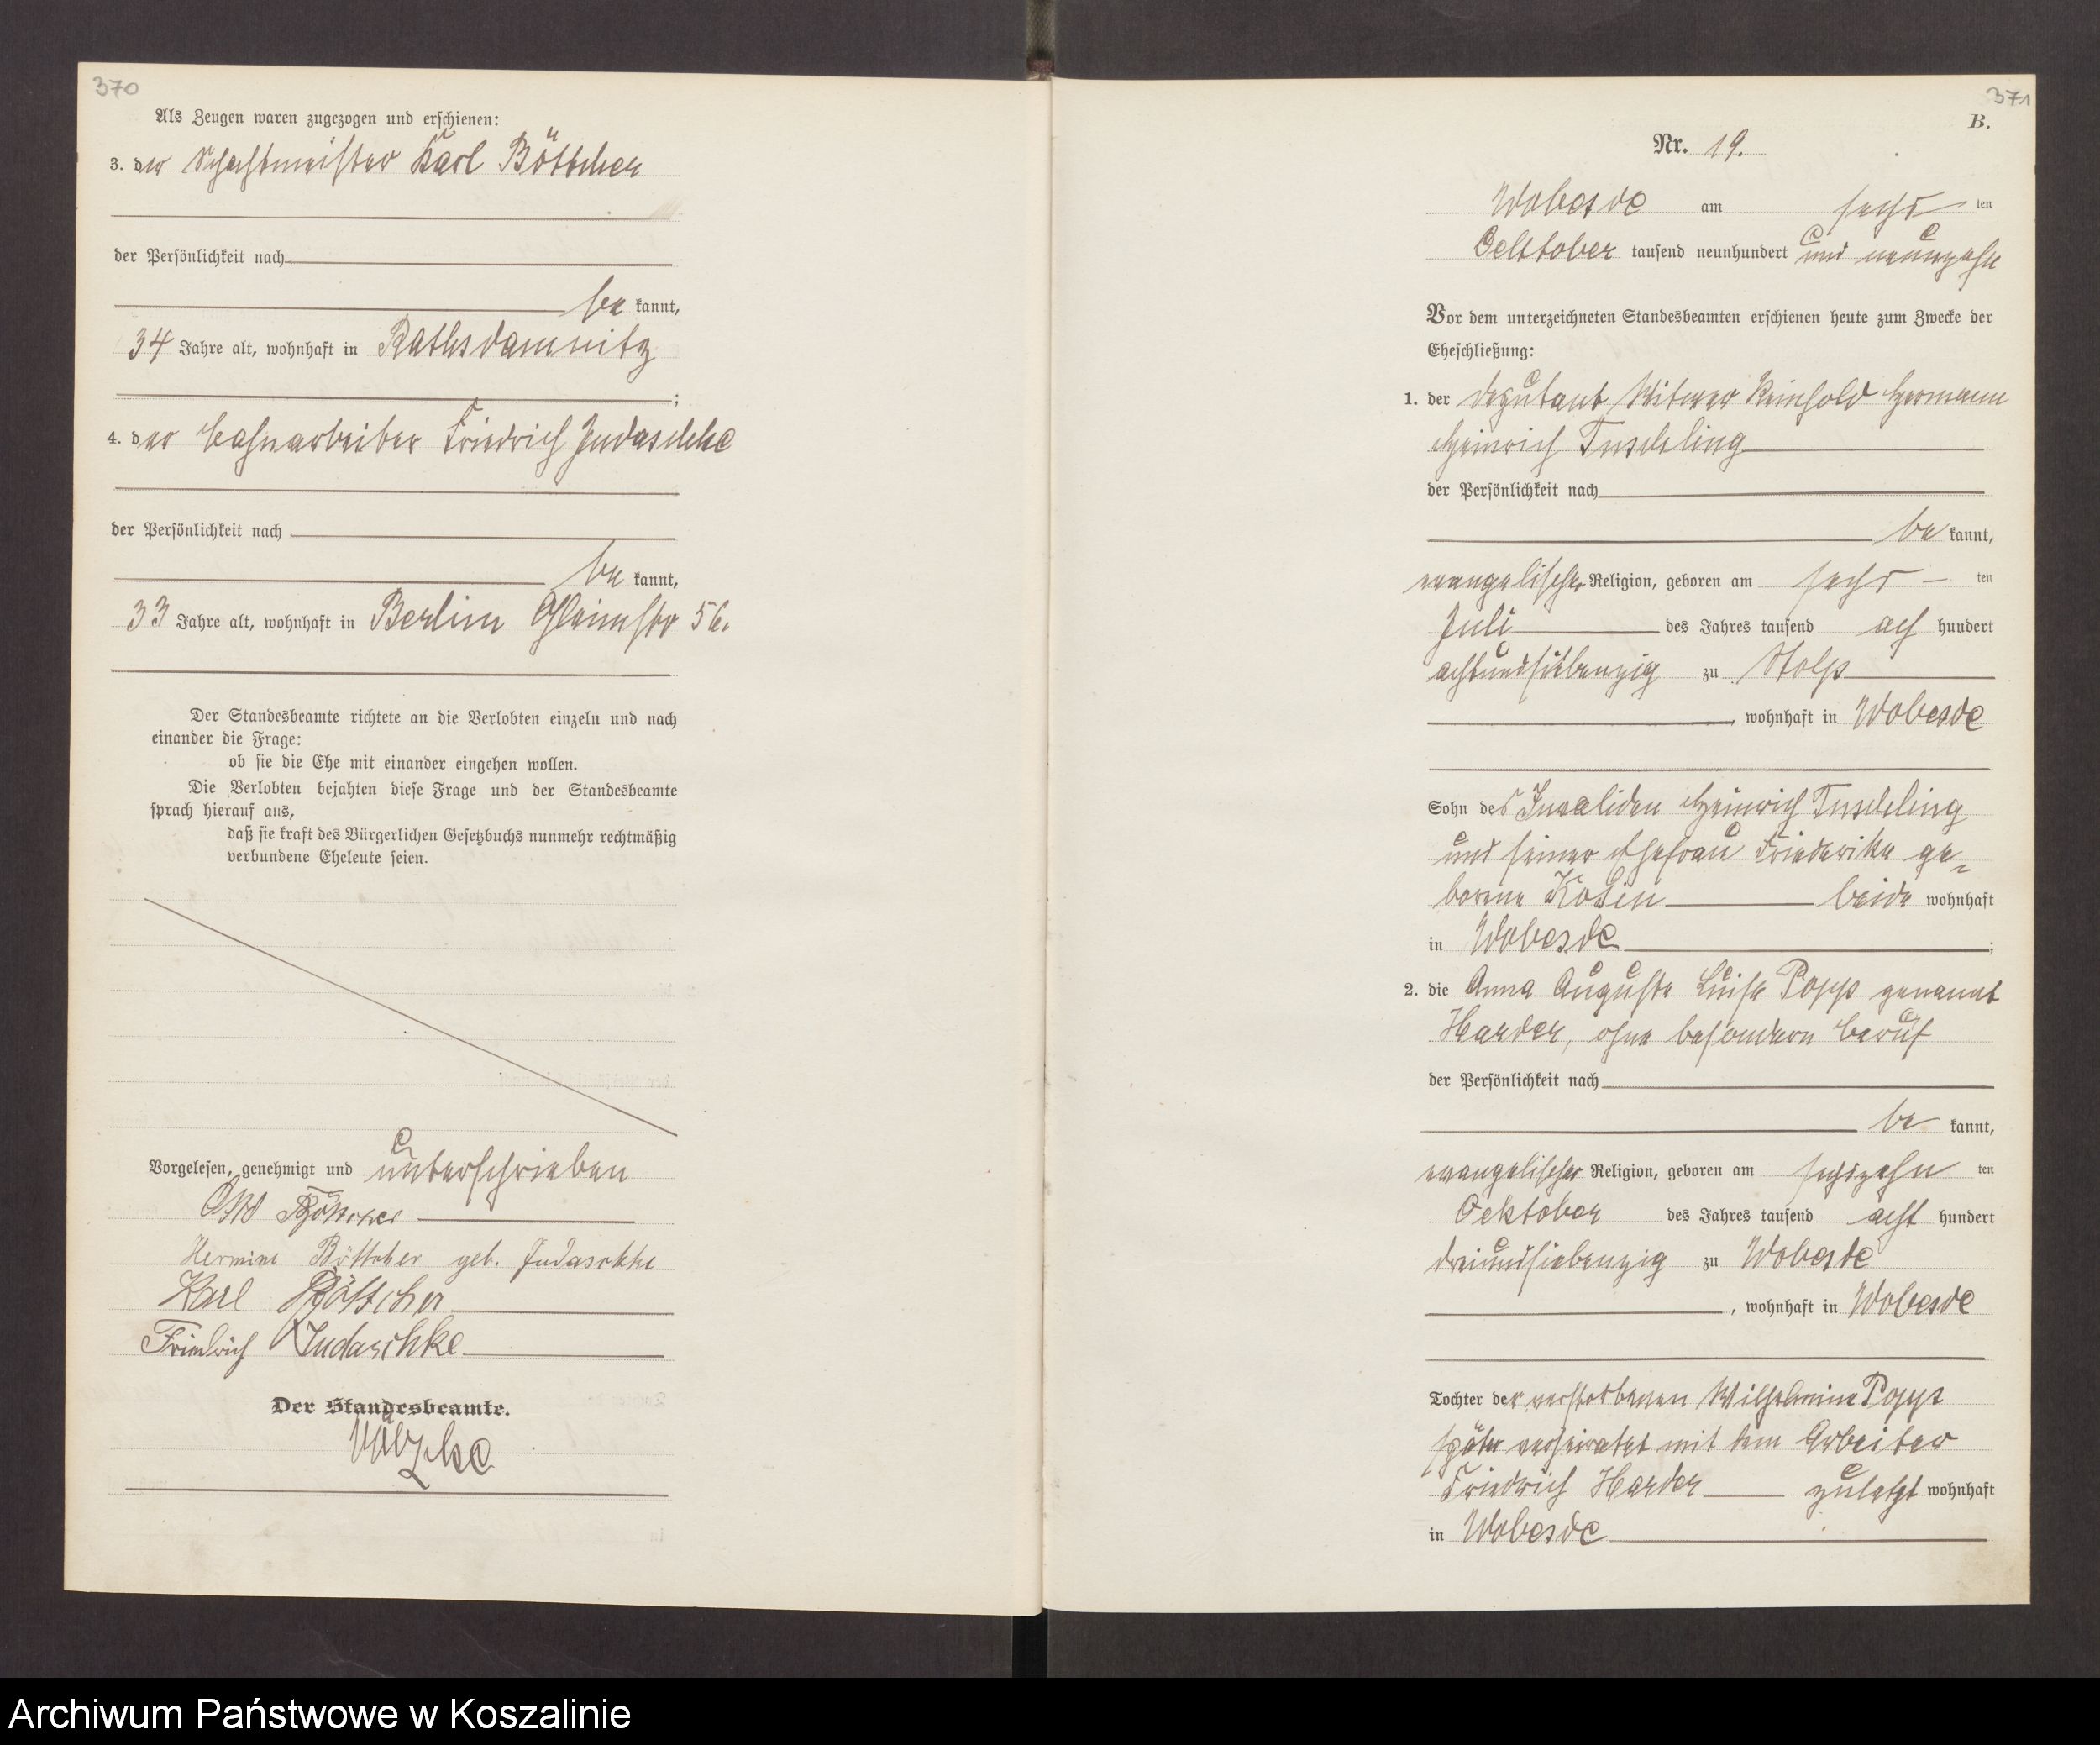 370
Als Zeugen waren zugezogen und erschienen:
3. der Schachtmeister Karl Böttcher
der Persönlichkeit nach
be kannt,
34 Jahre alt, wohnhaft in Rathsdamnitz
;
4. der Bahnarbeiter Friedrich Judaschke
der Persönlichkeit nach
be kannt,
33 Jahre alt, wohnhaft in Berlin Gleimstr 56.
Der Standesbeamte richtete an die Verlobten einzeln und nach
einander die Frage:
ob sie die Ehe mit einander eingehen wollen.
Die Verlobten bejahten diese Frage und der Standesbeamte
sprach hierauf aus,
daß sie kraft des Bürgerlichen Gesetzbuchs nunmehr rechtmäßig
verbundene Eheleute seien.
Vorgelesen, genehmigt und unterschrieben
Böttcher
Hermine Böttcher geb. Judaschke
Karl Böttcher
Friedrich Judaschke
Der Standesbeamte.
371
B.
Nr. 19.
Wobesde am sechs ten
Oektober tausend neunhundert und neunzehn
Vor dem unterzeichneten Standesbeamten erschienen heute zum Zwecke der
Eheschließung:
1. der Deputant Witwer Reinhold Hermann
Heinrich Tuschling
der Persönlichkeit nach
be kannt,
evangelischer Religion, geboren am sechs ten
Juli des Jahres tausend ach hundert
achtundsiebenzig zu Stolp
, wohnhaft in Wobesde
Sohn des Invaliden Heinrich Tuschling
und seiner Ehefrau Friederike ge-
borene Kosin beide wohnhaft
in Wobesde ;
2. die Anna Auguste Luise Popp genannt
Harder, ohne besondern Beruf
der Persönlichkeit nach
be kannt,
evangelischer Religion, geboren am sechszehn ten
Oektober des Jahres tausend acht hundert
dreiundsiebenzig zu Wobesde
, wohnhaft in Wobesde
Tochter der verstorbenen Wilhelmine Popp
später verheiratet mit dem Arbeiter
Friedrich Harder zuletzt wohnhaft
in Wobesde
Archiwum Państwowe w Koszalinie